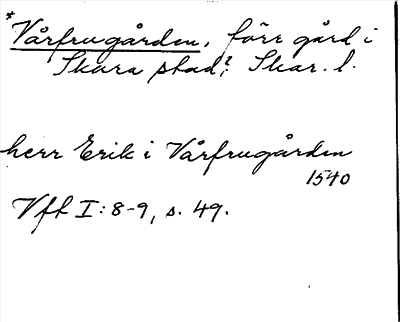 *Vårfrugården, förr gård i
Skara stad? Skar. l.
herr Erik i Vårfrugården
1540
Vft I:8-9, s. 49.